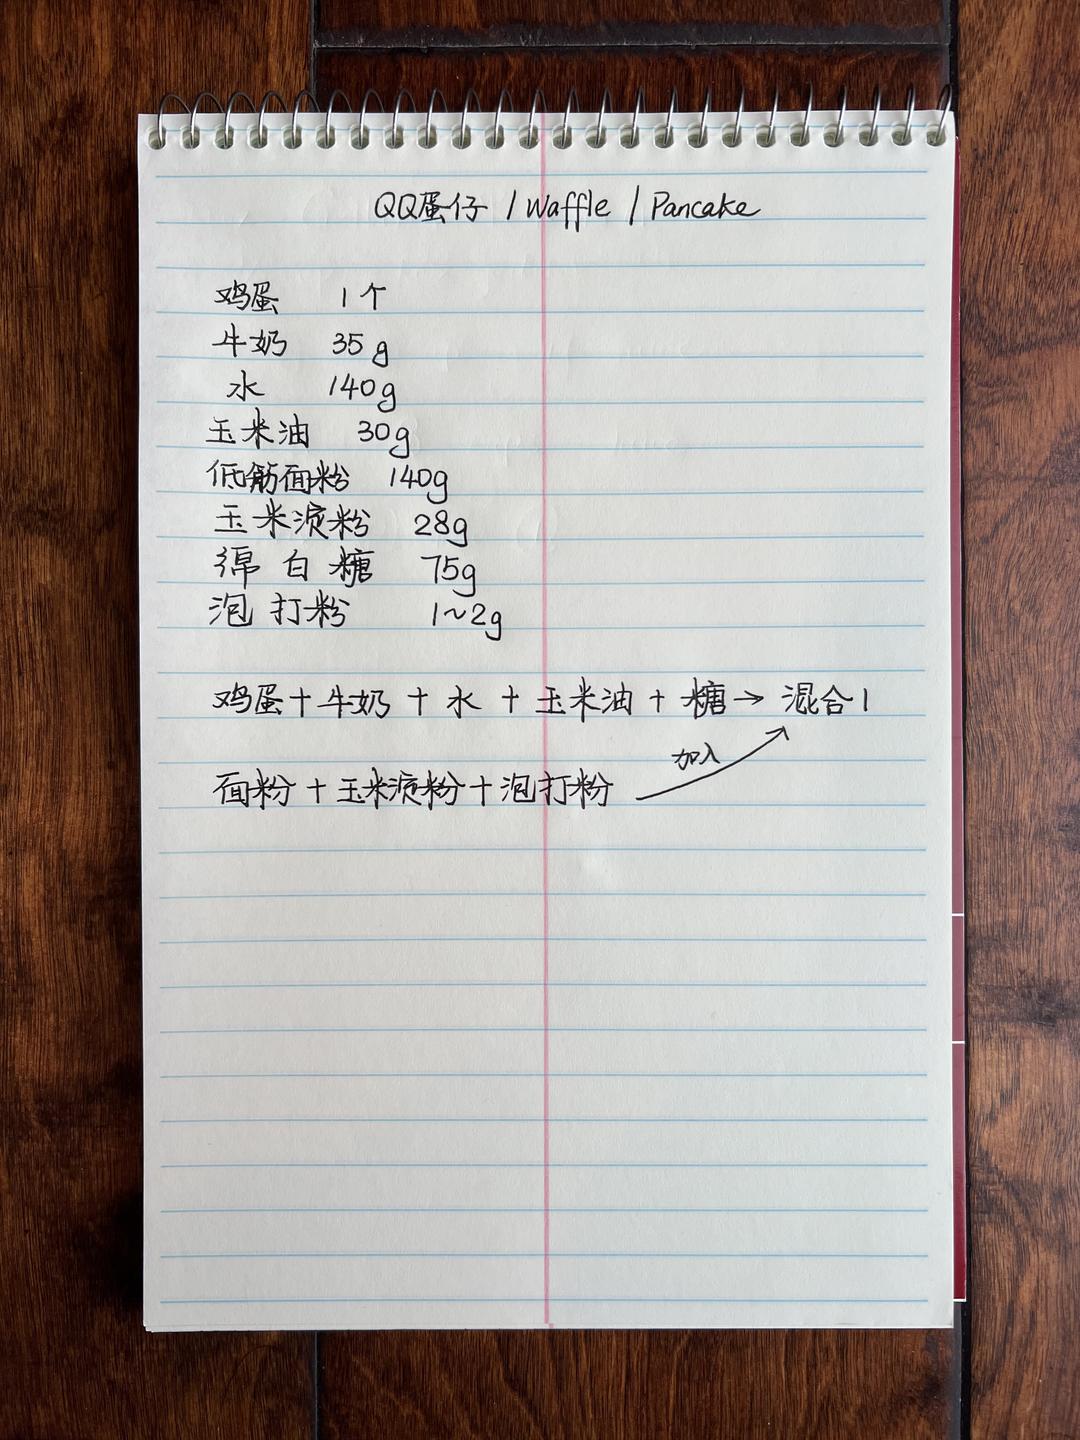 QQ蛋仔 / Waffle / Pancake
鸡蛋 1个
牛奶 35g
水 140g
玉米油 30g
低筋面粉 140g
玉米淀粉 28g
绵白糖 75g
泡打粉 1~2g
鸡蛋+牛奶+水+玉米油+糖→混合1
加入
面粉+玉米淀粉+泡打粉